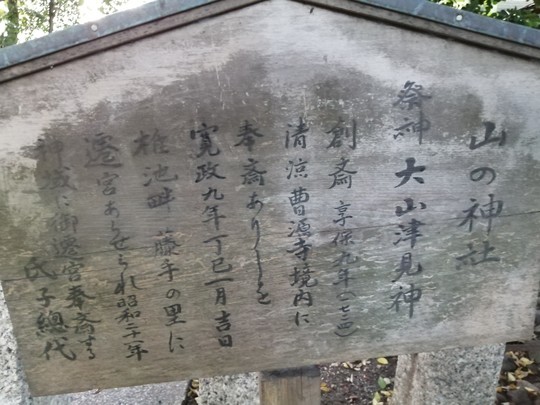 山の神社
祭神 大山津見神
創斎 享保九年(一七二四)
清涼曹源寺境内に
奉斎ありしを
寛政九年丁巳一月吉日
椎池畔 藤手の里に
遷宮あらせられ昭和二十年
神域に御遷宮奉斎する
氏子總代